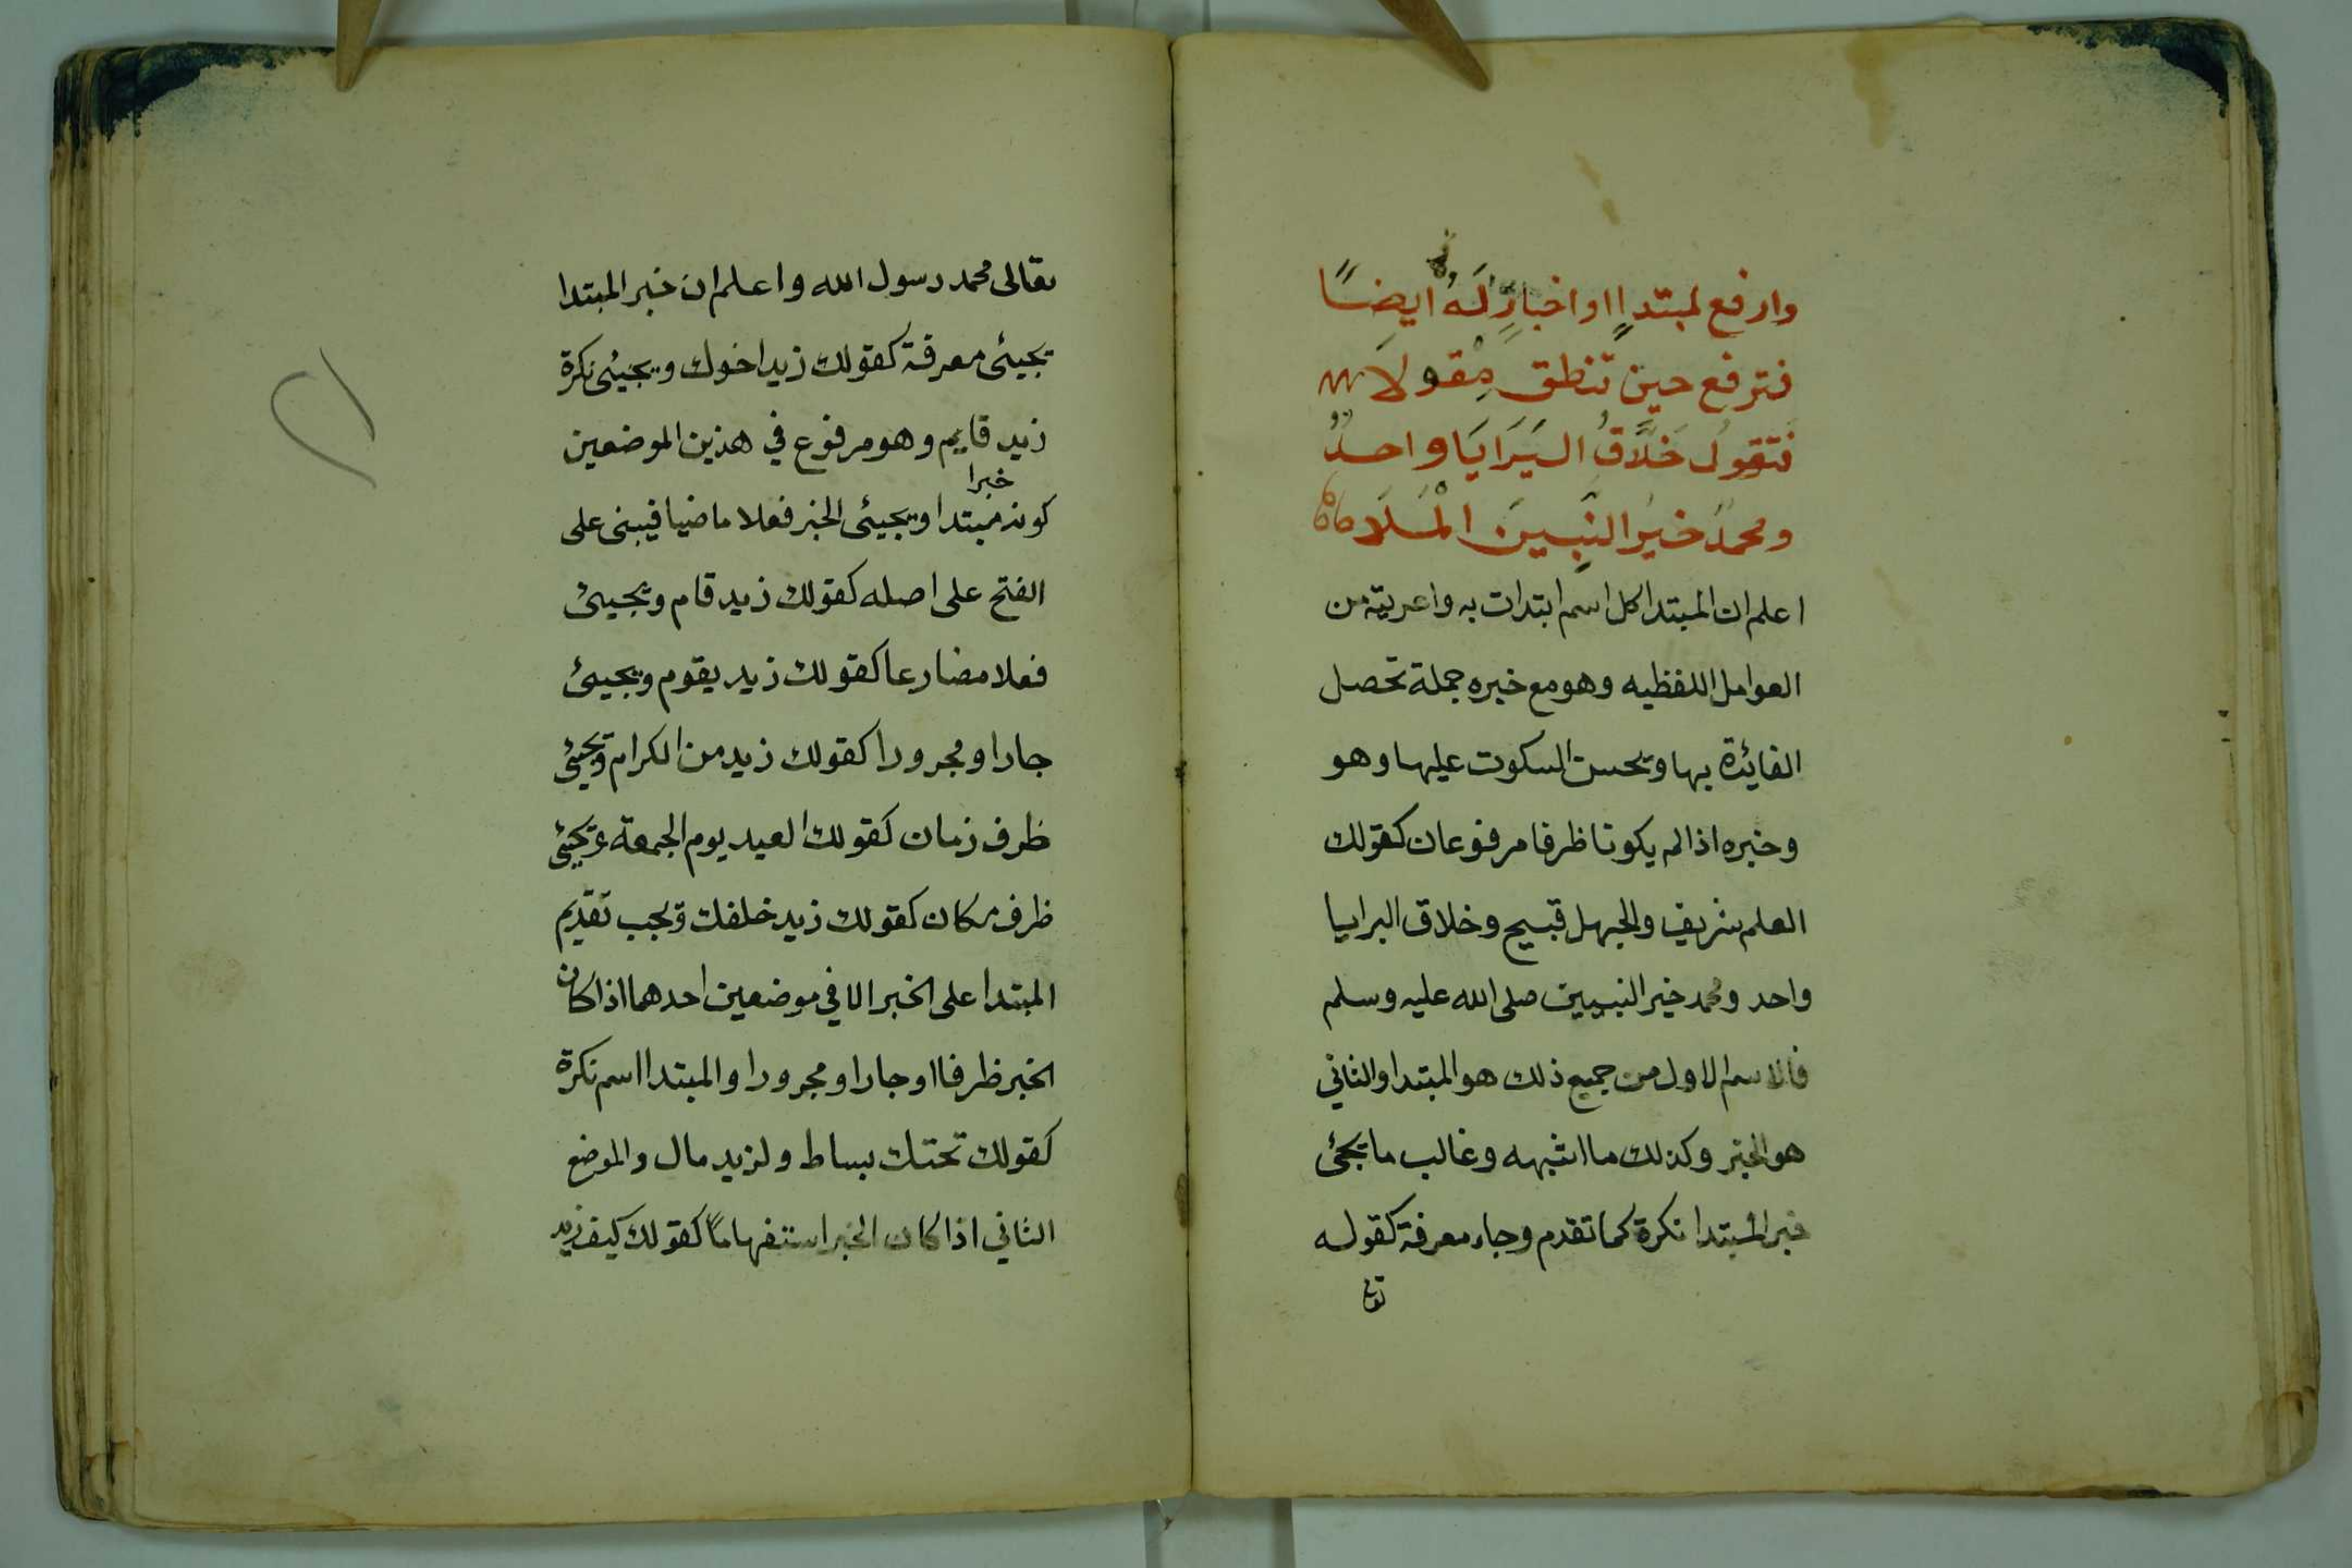 وارفع لمبتدإ او اخبار له ايضًا
فترفع حين تنطق مقولا
فتقول خلّاقُ البَرَايَا واحدٌ
ومحمدٌ خيرُ النبيينَ الْمَلَا
اعلم ان المبتدا كل اسم ابتدات به واعريته من
العوامل اللفظيه وهو مع خبره جملة تحصل
الفائدة بها ويحسن السكوت عليها وهو
وخبره اذا لم يكونا ظرفا مرفوعان كقولك
العلم شريف والجهل قبيح وخلاق البرايا
واحد ومحمد خير النبيين صلى الله عليه وسلم
فالاسم الاول من جميع ذلك هو المبتدا والثاني
هو الخبر وكذلك ما اشبهه وغالب ما يجئ
خبر المبتدا نكرة كما تقدم وجاء معرفة كقوله
تعا
تعالى محمد رسول الله واعلم ان خبر المبتدا
يجيئ معرفة كقولك زيد اخوك ويجيئ نكرة
زيد قايم وهو مرفوع في هذين الموضعين
خبرا
كونه مبتدا ويجيئ الخبر فعلا ماضيا فيبنى على
الفتح على اصله كقولك زيد قام ويجيئ
فعلا مضارعا كقولك زيد يقوم ويجيئ
جارا ومجرورا كقولك زيد من الكرام ويجيئ
ظرف زمان كقولك العيد يوم الجمعة ويجيئ
ظرف مكان كقولك زيد خلفك ويجب تقديم
المبتدا على الخبر الا في موضعين احدهما اذا كان
الخبر ظرفا او جارا ومجرورا والمبتدا اسم نكرة
كقولك تحتك بساط ولزيد مال والموضع
الثاني اذا كان الخبر استفهاماً كقولك كيف زيد